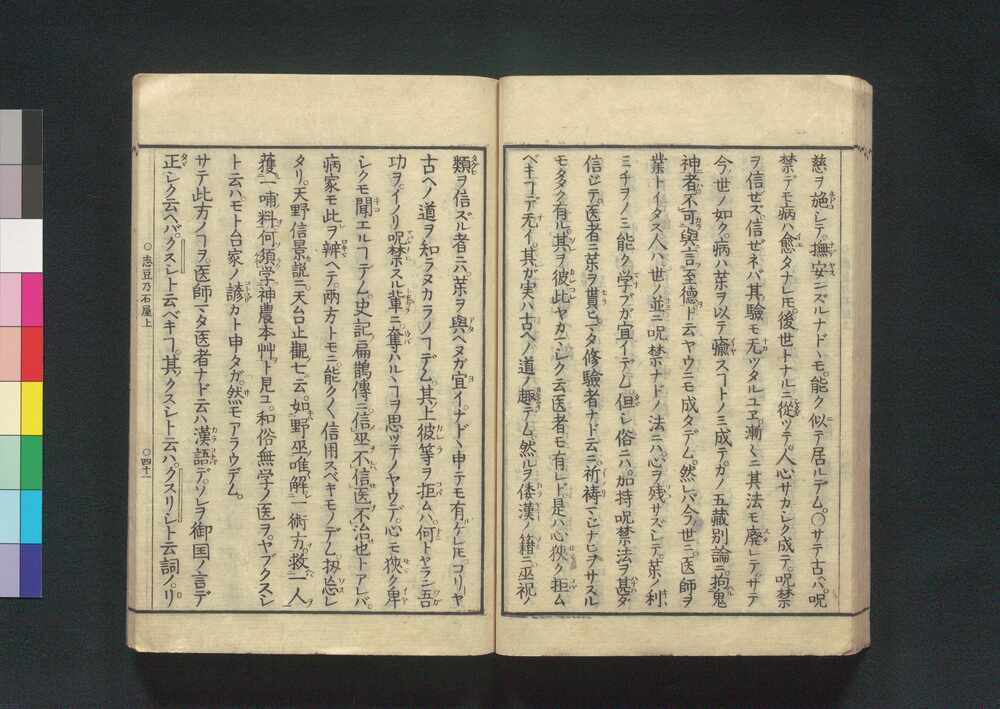 慈ヲ施シテ。撫安ンズルナド丶モ。能ク似テ居ルデム。○サテ古ハ呪
禁デモ病ハ愈タナレ𪜈。後世トナルニ從ツテ。人心サカシク成テ。呪禁
ヲ信ぜズ。信ぜネバ其驗モ无ツタルユヱ漸々ニ其法モ廢レテ。サテ
今世ノ如ク。病ハ藥ヲ以テ癒スヿトノミ成テ。カノ五藏別論ニ。拘鬼
神者不可與言至德ト云ヤウニモ成タデム。然レバ今世ニ医師ヲ
業トイタス人ハ。世ノ並ニ呪禁ナドノ法ニハ。心ヲ残サズシテ。藥ノ利
ミチヲノミ能ク学ブガ宜イデム。但シ俗ニハ。加持呪禁法ヲ甚ダ
信ジテ。医者ニ藥ヲ貰ヒ。マタ修驗者ナド云ニ。祈祷マジナヒヲサスル
モマタク有ル。其ヲ彼此ヤカマシク云医者モ。有レド。是ハ心狹ク。拒ム
ベキヿデ无イ。其ガ実ハ古ヘノ道ノ趣デム。然ルヲ倭漢ノ籍ニ。巫祝ノ
類ヲ信ズル者ニハ。藥ヲ與ヘヌガ宜イ。ナド丶申テモ有ケレ𪜈。コリヤ
古ヘノ道ヲ知ラヌカラノヿデム。其上彼等ヲ拒ムハ。何トヤラン吾
功ヲ。イノリ呪禁スル輩ニ。奪ハル丶ヿヲ思ツテノヤウデ。心モ狹ク卑
シクモ聞エルヿデム。史記ノ扁鵲傳ニ。信巫不信医不治也トアレバ。
病家モ此ヲ辨ヘテ。両方トモニ能クく信用スベキモノデム。扨忘レ
タリ。天野信景説ニ。天台止觀七ニ云。如野巫唯解一術方。救一人
獲一哺料何須学神農本艸ト見ユ。和俗無学ノ医ヲ。ヤブクスシ
ト云ハ。モト台家ノ諺カト申タガ。然モアラウデム。
サテ此方ノヿヲ。医師マタ医者ナド云ハ。漢語デ。ソレヲ御国ノ言デ
正シク云ヘバ。クスシト云ベキヿ。其クスシト云ハ。クスリシト云詞ノ。リ
○志豆乃石屋上
○四十一